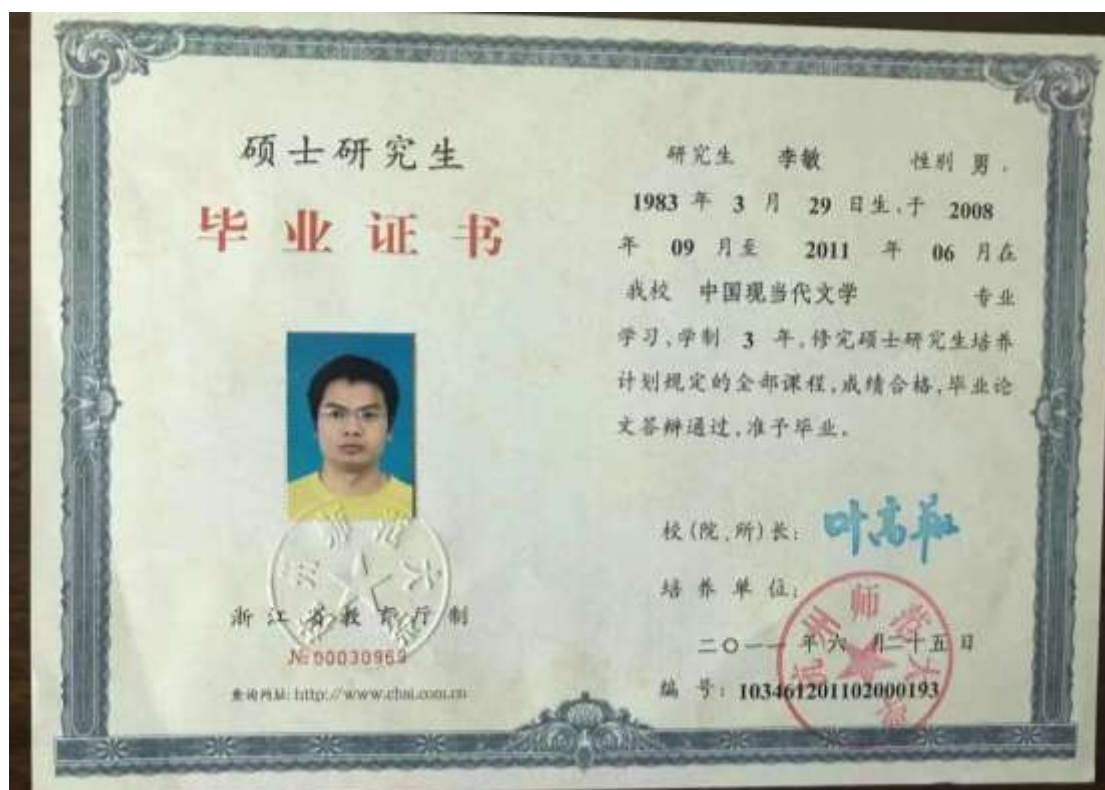 硕士研究生
毕业证书
浙江省教育厅制
№ 00030969
查询网址: http://www.chsi.com.cn
研究生 李敏 性别 男,
1983 年 3 月 29 日生,于 2008
年 09 月至 2011 年 06 月在
我校 中国现当代文学 专业
学习,学制 3 年,修完硕士研究生培养
计划规定的全部课程,成绩合格,毕业论
文答辩通过,准予毕业。
校(院、所)长: 叶高翔
培养单位:
杭州师范大学
二〇一一年六月二十五日
编号: 103461201102000193